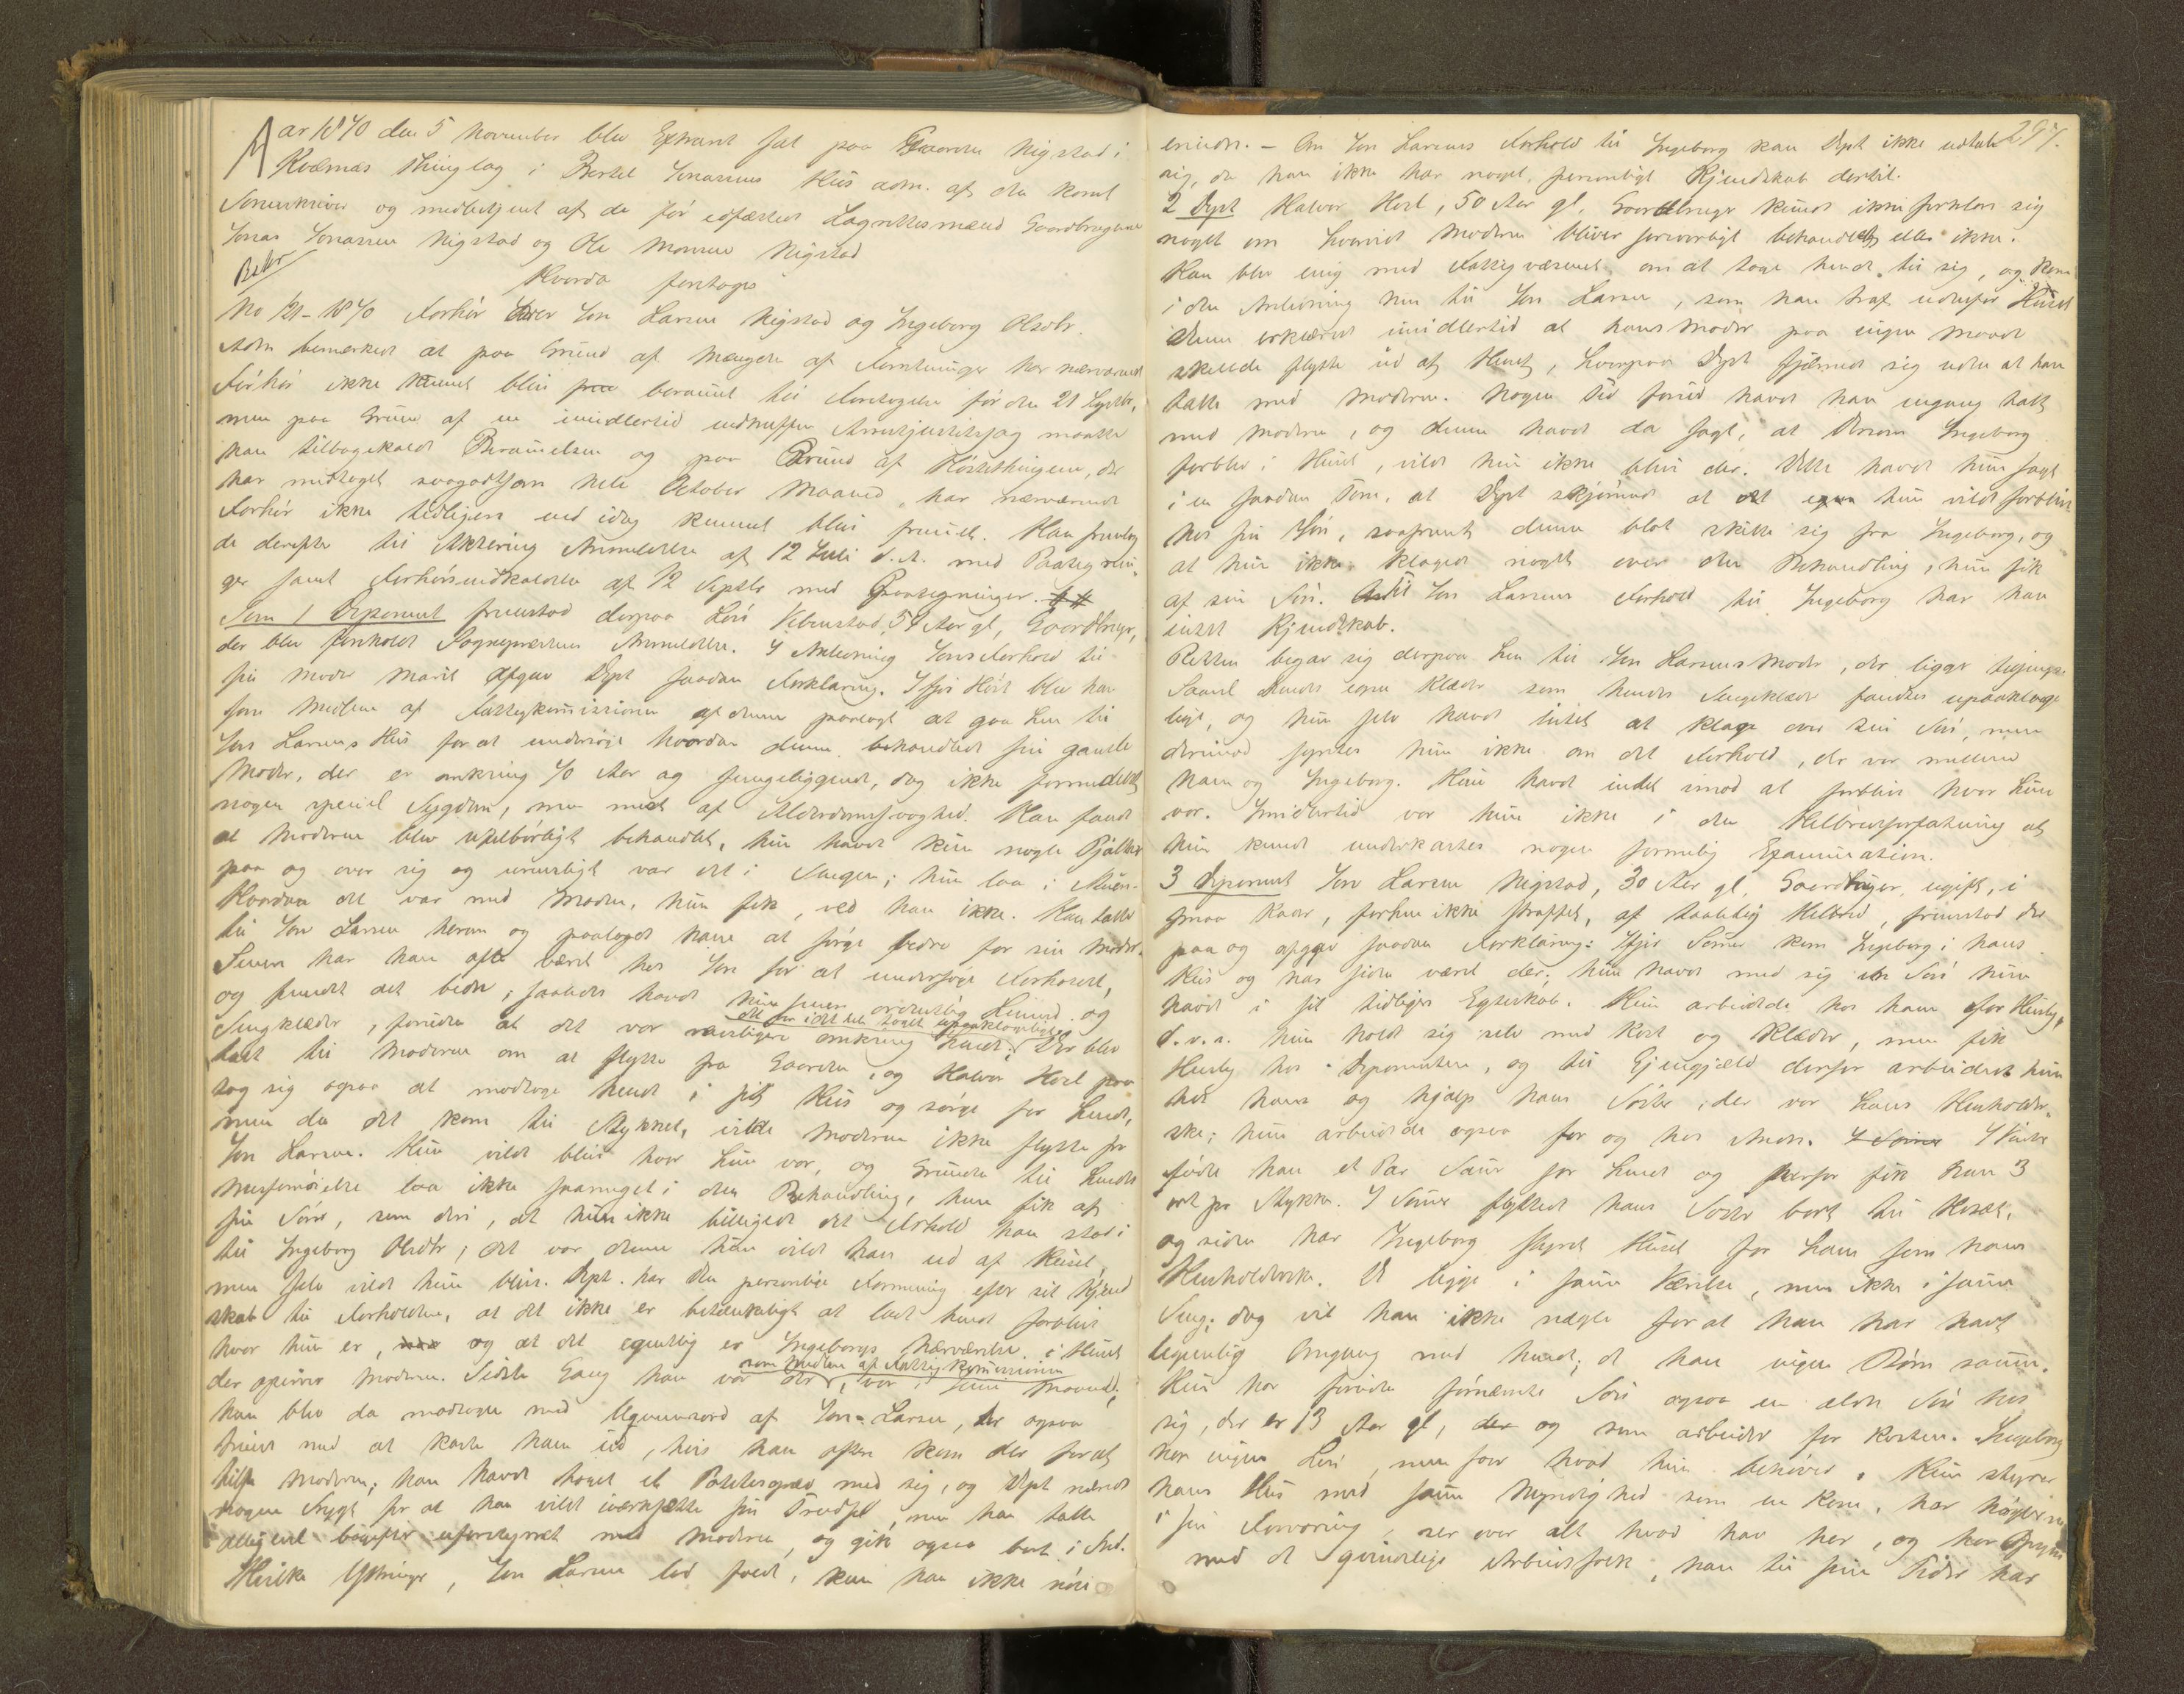 Aar 1870 den 5 November blev Extraret sat paa Gaarden Nigstad i
Kværnæs Thinglag i Bertel Jonassens Hus adm. af den konst
Sorenskriver og medbetjent af de før edfæstede Lagrettesmænd Gaardbrugerne
Jonas Jonassen Nigstad og Ole Monsen Nigstad
Hvorda foretoges
No 121-1870 Forhør over Jon Larsen Nigstad og Ingeborg Olsdtr.
Adm bemærkede at paa Grund af Mængde af Forretninger har nærværende
Forhør ikke kunnet blive berammet til Foretagelse før den 21 Septbr,
men paa Grund af en imidlertid indtruffen Arrestjustitssag maatte
han tilbagekalde Berammelsen og paa Grund af Høstethingene, der
har medtaget saagodtsom hele October Maaned, har nærværende
Forhør ikke tidligere end idag kunnet blive fremmet. Han fremlagde
de derefter til Aktering Anmeldelse af 12 Juli d.A. med Paategnin-
ger samt Forhørsindkaldelse af 12 Septbr med Paategninger.
Som 1 Deponent fremstod derpaa Lars Vebenstad, 54 Aar gl, Gaardbruger,
der blev foreholdt Sognepræstens Anmeldelse. I Anledning Jons Forhold til
sin Moder Marit afgav Dept saadan Forklaring. Ifjor Høst blev han
som Medlem af Fattigkommissionen af denne paalagt at gaa hen til
Jon Larsens Hus for at undersøge hvordan denne behandlede sin gamle
Moder, der er omkring 70 Aar og sengeliggende, dog ikke formedelst
nogen speciel Sygdom, men mest af Alderdomssvaghed. Han fandt
at Moderen blev utilbørligt behandlet, hun havde kun nogle Pjalter
paa og over sig og urensligt var det i Sengen; hun laa i Stuen.
Hvordan det var med Maden, hun fik, ved han ikke. Han talte
til Jon Larsen herom og paalagde ham at sørge bedre for sin Moder.
Senere har han ofte været hos Jon for at undersøge Forholdet,
og fundet det bedre, saaledes havde hun senere ordentlig Linned og
Sengklæder, foruden at det var rensligere omkring hende, det var i det hele taget upaaklageligt. Der blev
talt til Moderen om at flytte fra Gaarden, og Halvor Hoel paa-
tog sig ogsaa at modtage hende i sit Hus og sørge for hende,
men da det kom til Stykket, vilde Moderen ikke flytte fra
Jon Larsen. Hun vilde blive hvor hun var, og Grunden til hendes
Misfornøielse laa ikke saameget i den Behandling, hun fik af
sin Søn, som deri, at hun ikke billigede det Forhold han stod i
til Ingeborg Olsdtr; det var denne hun vilde have ud af Huset,
men selv vilde hun blive. Dept. har den personlige Formening efter sit Kjend-
skab til Forholdene, at det ikke er betænkeligt at lade hende forblive
hvor hun er, og at det egentlig er Ingeborgs Nærværelse i Huset
der generer Moderen. Sidste Gang han var der, som Medlem af Fattigkommissionen, var i Juni Maaned;
han blev da modtagen med Ugunsord af Jon Larsen, der ogsaa
truede med at kaste ham ud, hvis han oftere kom der for at
hilse Moderen; han havde taget et Potetesgræv med sig, og Dept nærede
nogen Frygt for at han vilde iværksætte sin Trudsel, men han talte
alligevel uforstyrret med Moderen, og gik ogsaa bort i Fred.
Hvilke Yttringer, Jon Larsen lod falde, kan han ikke nøie
297.
erindre. - Om Jon Larsens Forhold til Ingeborg kan Dept ikke udtale
sig, da han ikke har noget personligt Kjendskab dertil.
2 Dept Halvor Hoel, 50 Aar gl, Gaardbruger kunde ikke forklare sig
noget om hvorvidt Moderen bliver forsvarligt behandlet eller ikke.
Han blev enig med Fattigvæsenet om at tage hende til sig, og kom
i den Anledning hen til Jon Larsen, som han traf udenfor Huset.
Denne erklærede imidlertid at hans Moder paa ingen Maade
skulde flytte ud af Huset, hvorpaa Dept fjærnede sig uden at have
talt med Moderen. Nogen Tid forud havde han engang talt
med Moderen, og denne havde da sagt, at dersom Ingeborg
forblev i Huset, vilde hun ikke blive der. Dette havde hun sagt
i en saadan Tone, at Dept skjønnede at hun vilde forblive
hos sin Søn, saafremt denne blot skilte sig fra Ingeborg, og
at hun ikke klagede noget over den Behandling, hun fik
af sin Søn. Til Jon Larsens Forhold til Ingeborg har han
intet Kjendskab.
Retten begav sig derpaa hen til Jon Larsens Moder, der ligger tilsengs.
Saavel hendes egne Klæder som hendes Sengeklæder fandtes upaaklage-
lige, og hun selv havde intet at klage over sin Søn, men
derimod syntes hun ikke om det Forhold, der var mellem
ham og Ingeborg. Hun havde intet imod at forblive hvor hun
var. Imidlertid var hun ikke i den Helbredsforfatning at
hun kunde underkastes nogen formelig Examination.
3 Deponent Jon Larsen Nigstad, 30 Aar gl, Gaardbruger, ugift, i
smaa Kaar, forhen ikke straffet, af taalelig Helbred, fremstod der-
paa og afgav saadan Forklaring: Ifjor Somer kom Ingeborg i hans
Hus og har siden været der; hun havde med sig en Søn hun
havde i sit tidligere Egteskab. Hun arbeidede hos ham for Husly,
d.v.s. hun holdt sig selv med Kost og Klæder, men fik
Husly hos Deponenten, og til Gjengjæld derfor arbeidede hun
hos ham og hjalp hans Søster, der var hans Husholder-
ske; hun arbeidede ogsaa for og hos Andre. I Vinter
fødte han et Par Sauer for hende og derfor fik han 3
ort pr Stykke. I Somer flyttede hans Søster bort til Kvæl.,
og siden har Ingeborg styret Huset for ham som hans
Husholderske. De ligge i samme Værelse, men ikke i samme
Seng; dog vil han ikke nægte for at han har havt
legemlig Omgang med hende; de have ingen Børn sammen.
Hun har foruden førnævnte Søn ogsaa en ældre Søn hos
sig, der er 13 Aar gl, og som arbeider for Kosten. Ingeborg
har ingen Løn, men faar hvad hun behøver. Hun styrer
hans Hus med samme Myndighed som en Kone, har Nøglerne
i sin Forvaring, ser over alt hvad han har, og har Opsyn
med de qvindelige Arbeidsfolk, han til sine Tider har